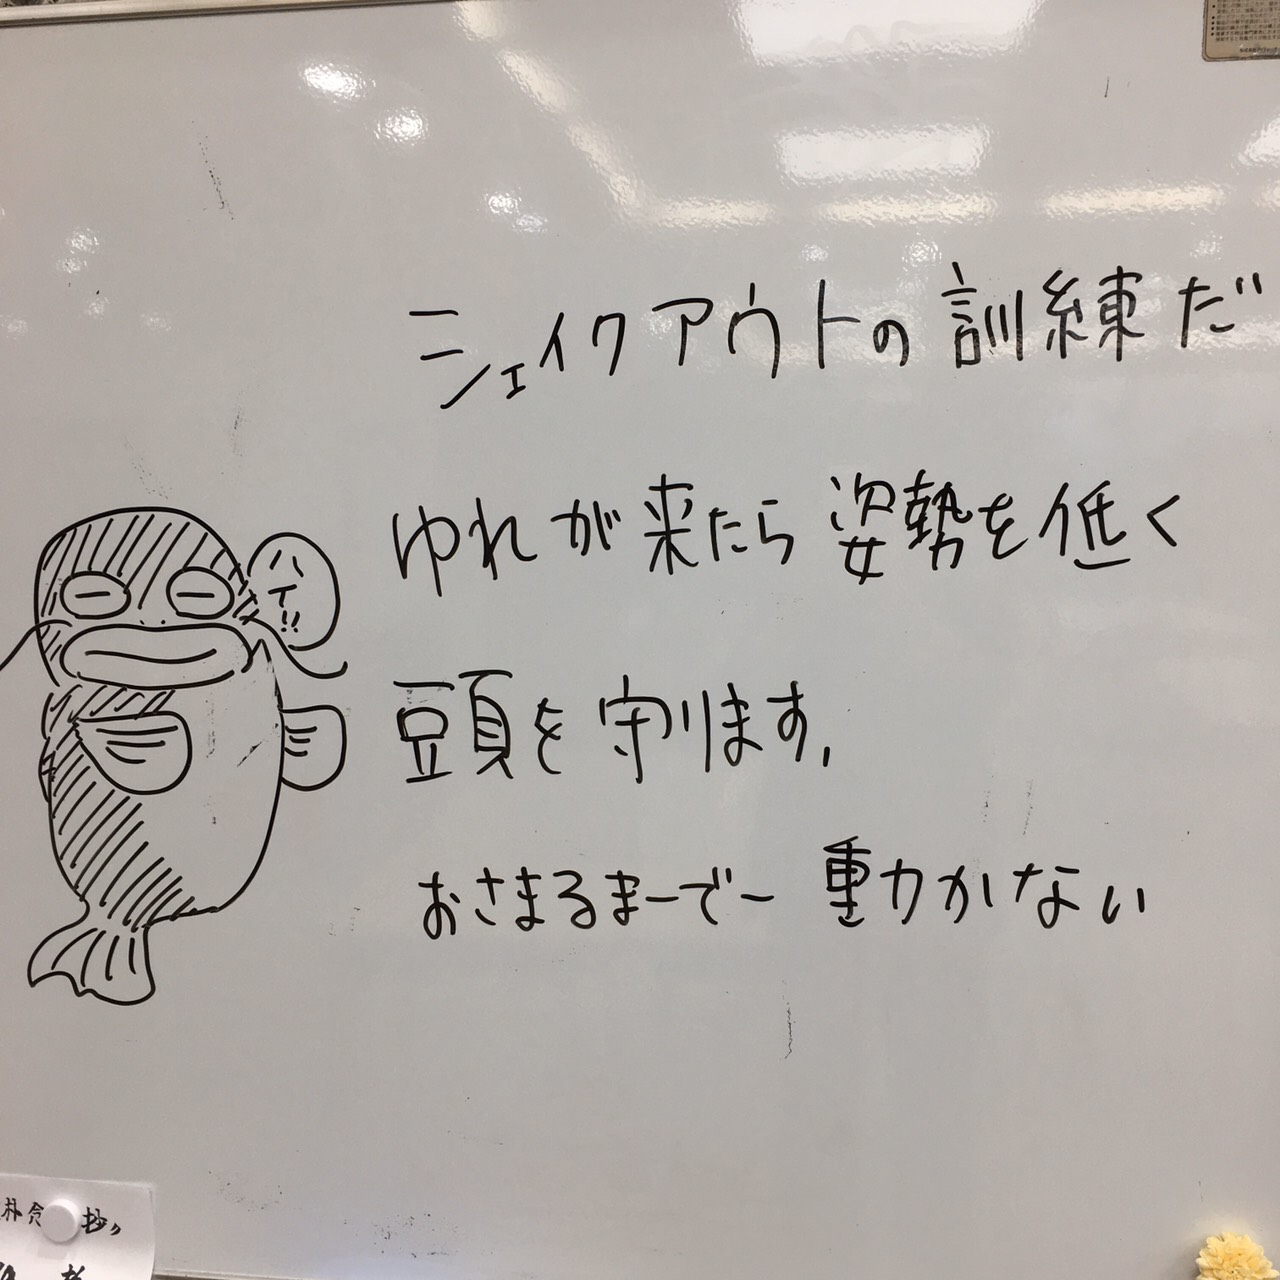 シェイクアウトの訓練だ
ゆれが来たら姿勢を低く
頭を守ります,
おさまるまーでー動かない
ハイ!!